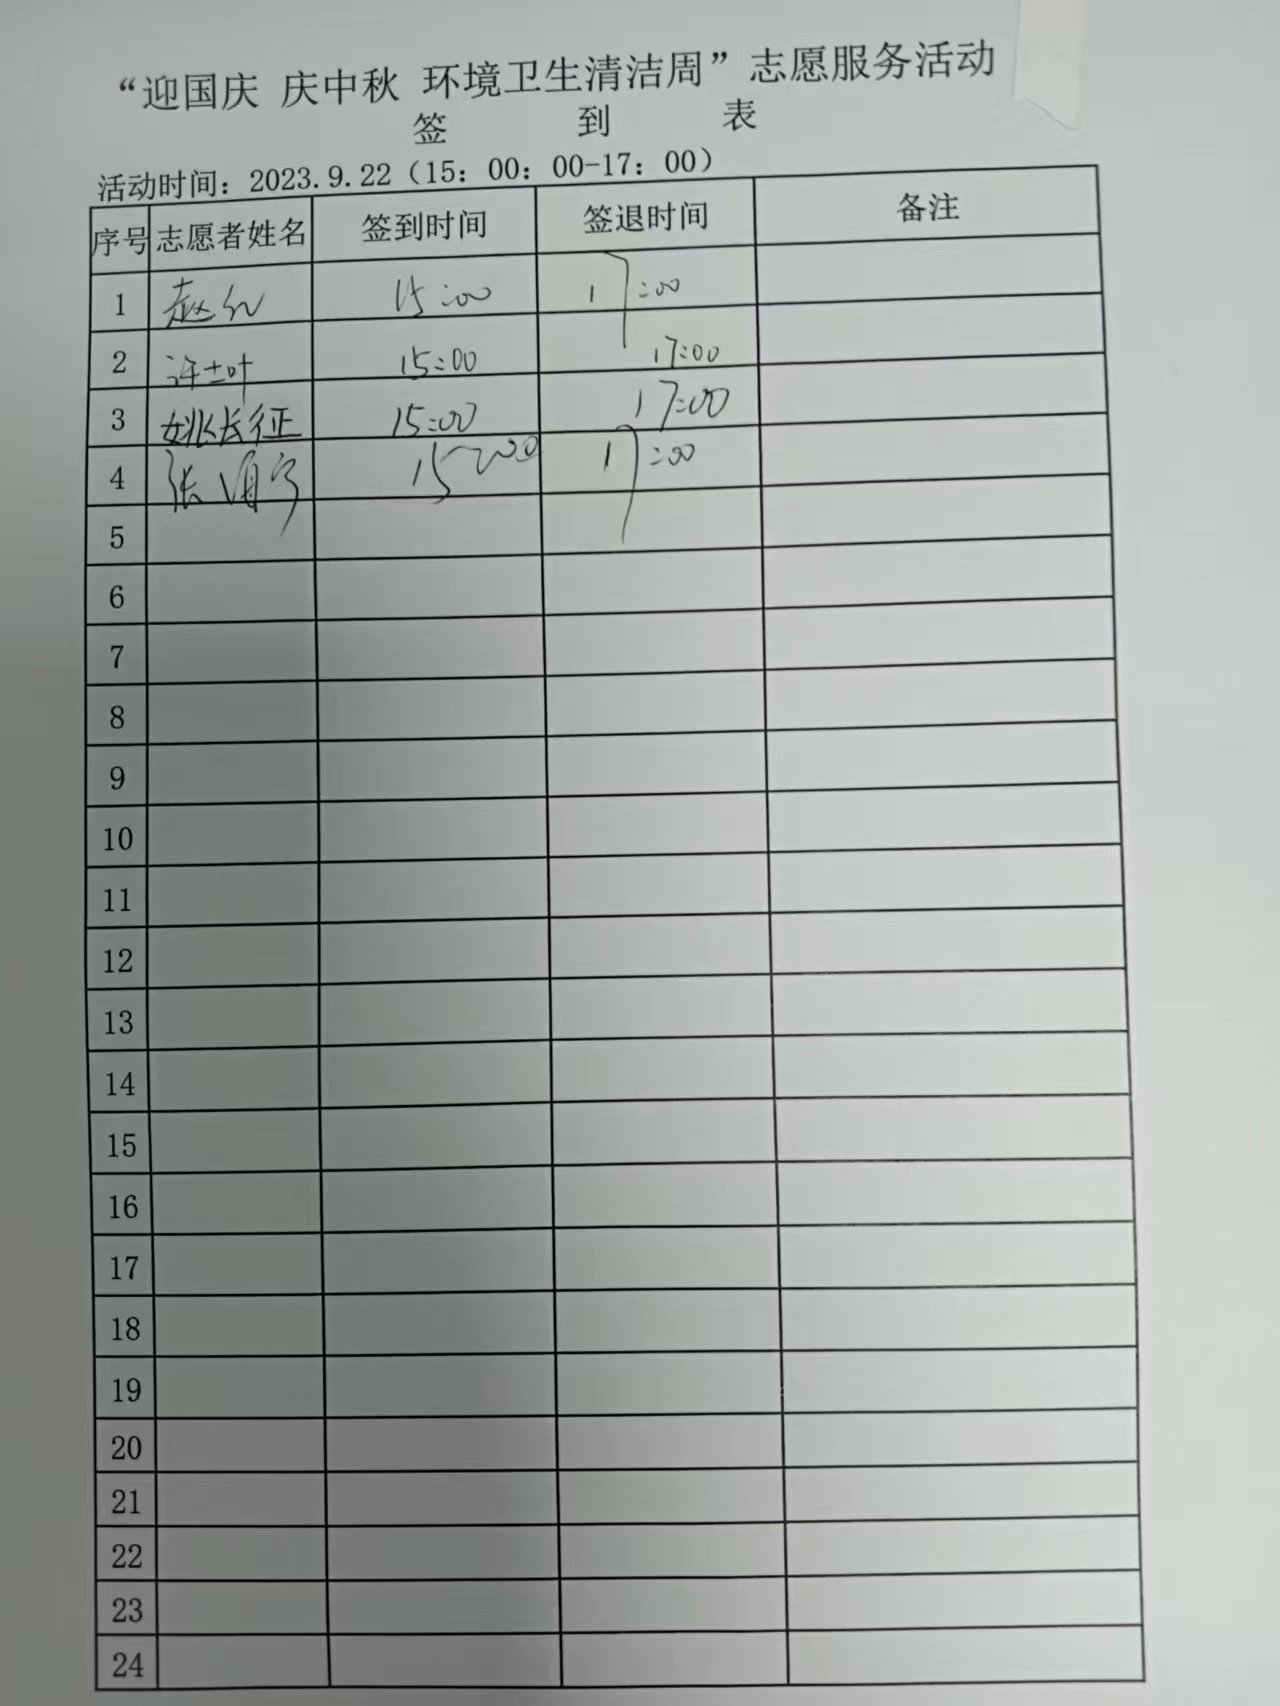 “迎国庆 庆中秋 环境卫生清洁周”志愿服务活动
签 到 表
活动时间：2023.9.22（15：00：00-17：00）
序号 志愿者姓名 签到时间 签退时间 备注
1 赵红 15:00 17:00
2 许士叶 15:00 17:00
3 姚长征 15:00 17:00
4 张 15:00 17:00
5
6
7
8
9
10
11
12
13
14
15
16
17
18
19
20
21
22
23
24